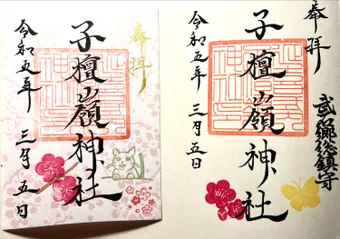 奉拝
子檀嶺神社
令和五年 三月 五日
奉拝
武郷総鎮守
子檀嶺神社
令和五年 三月五日